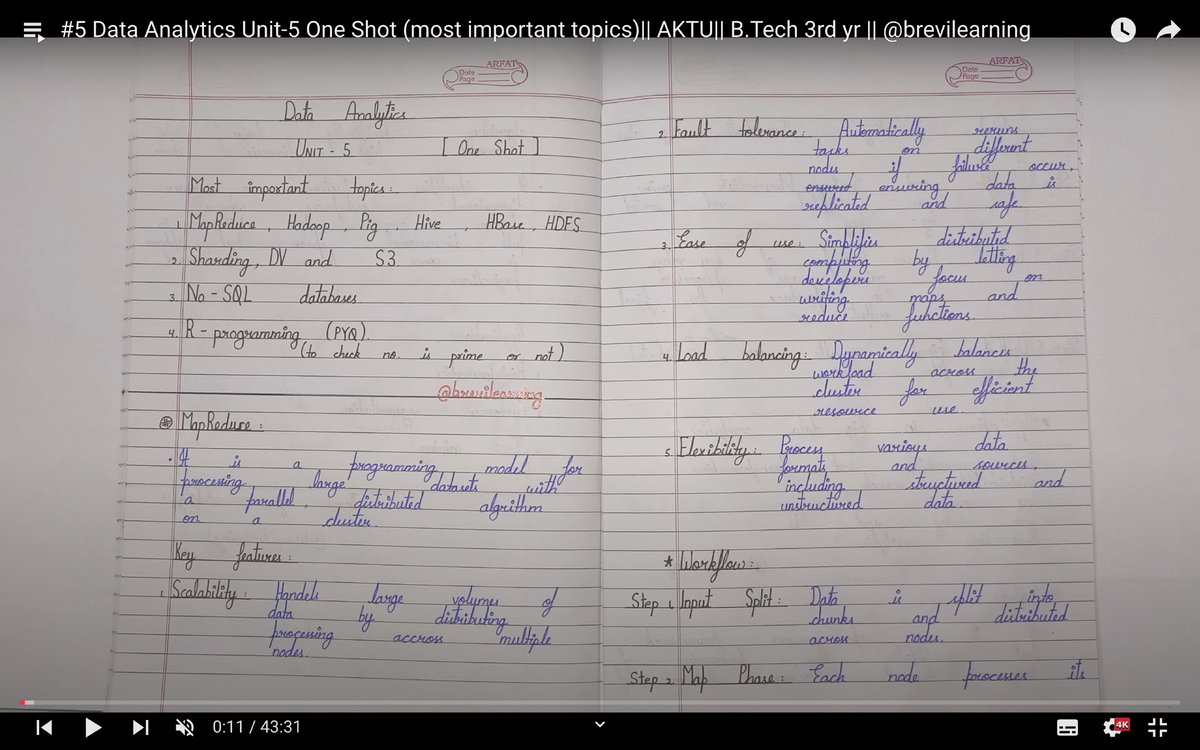 #5 Data Analytics Unit-5 One Shot (most important topics)|| AKTU|| B.Tech 3rd yr || @brevilearning
ARFAT
Date
Page
Data Analytics
UNIT - 5 [ One Shot ]
Most important topics:
1. MapReduce, Hadoop, Pig, Hive, HBase, HDFS
2. Sharding, DV and S3.
3. No - SQL databases
4. R - programming (PYQ).
(to check no. is prime or not)
@brevilearning
# MapReduce:
. It is a programming model for
processing large datasets with
a parallel, distributed algrithm
on a cluster.
Key features:
1. Scalability: Handels large volumes of
data by distributing
processing accross multiple
nodes.
ARFAT
Date
Page
2. Fault tolerance: Automatically reruns
tasks on different
nodes if failure occur,
ensured ensuring data is
replicated and safe.
3. Ease of use: Simplifies distributed
computing by letting
developers focus on
writing maps and
reduce functions.
4. Load balancing: Dynamically balances
workload across the
cluster for efficient
resource use.
5. Flexibility: Process various data
formats and sources,
including structured and
unstructured data.
* Workflow:
Step 1. Input Split: Data is split into
chunks and distributed
across nodes.
Step 2. Map Phase: Each node processes its
0:11 / 43:31
4K